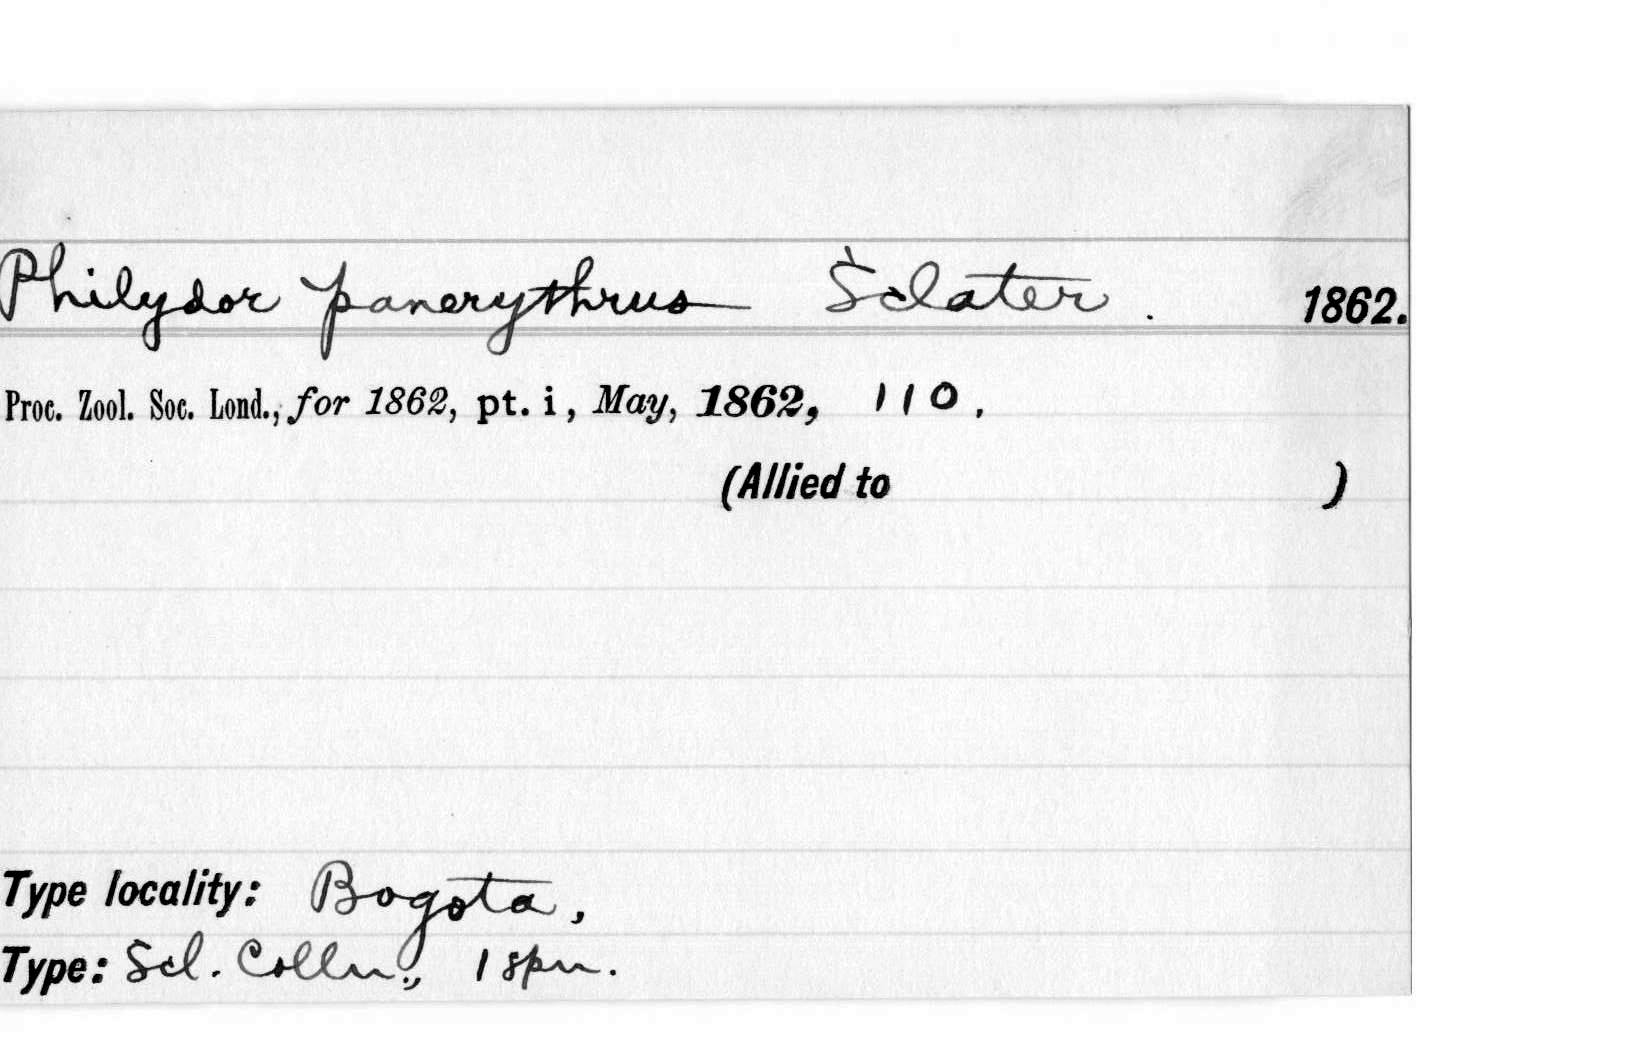 Philydor panerythrus Sclater. 1862.
Proc. Zool. Soc. Lond., for 1862, pt. i, May, 1862, 110.
(Allied to )
Type locality: Bogota,
Type: Scl. Colln., 1 spn.